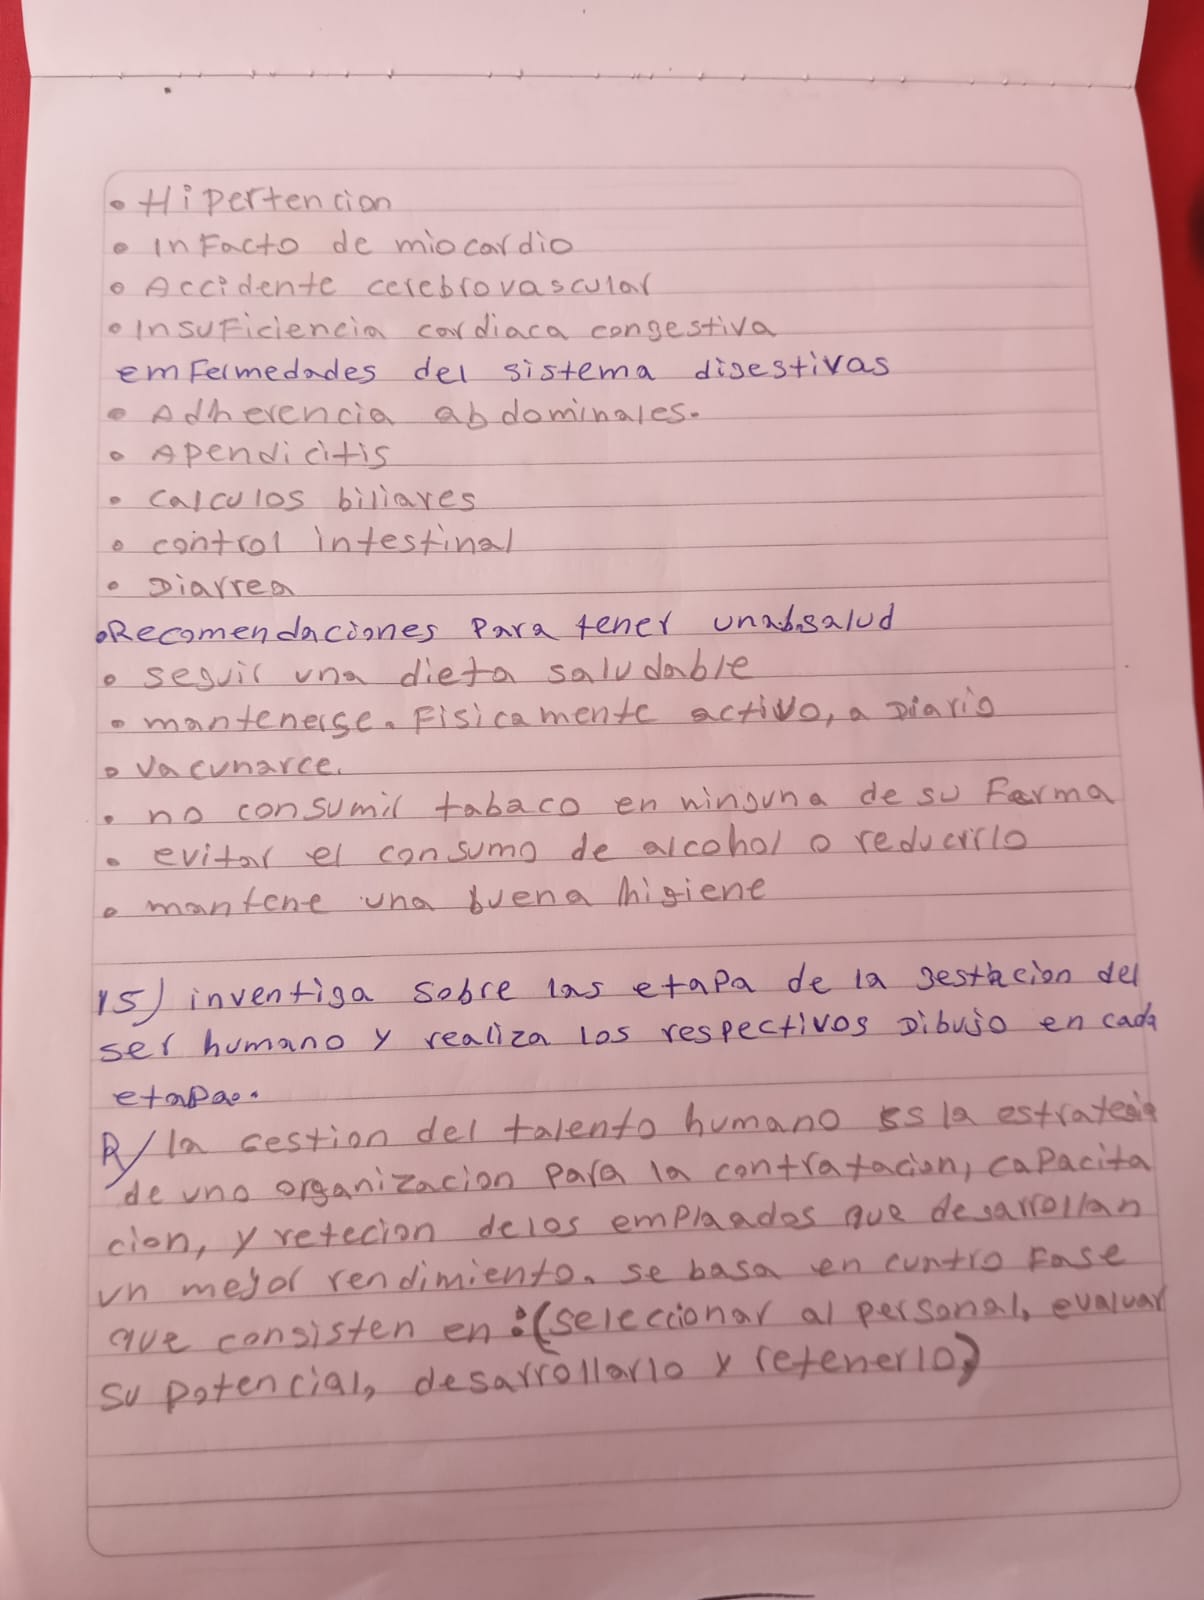 • Hipertencion
• inFacto de miocardio
• Accidente cerebrovascular
• InsuFiciencia cardiaca congestiva
emFermedades del sistema digestivas
• Adherencia abdominales.
• Apendicitis
• calculos biliares
• control intestinal
• Diarrea
• Recomendaciones Para tener unab.salud
• seguir una dieta saludable
• mantenerse. Fisicamente activo, a Diario
• vacunarce.
• no consumir tabaco en ninguna de su Forma
• evitar el consumo de alcohol o reducirlo
• mantene una buena higiene
15) inventiga sobre las etapa de la gestacion del
ser humano y realiza los respectivos Dibujo en cada
etapa..
R/ la gestion del talento humano es la estrategia
de una organizacion Para la contratacion, capacita
cion, y retecion delos emplaados que desarrollan
un mejor rendimiento. se basa en cuntro Fase
que consisten en: (seleccionar al personal, evaluar
su potencial, desarrollarlo y retenerlo)